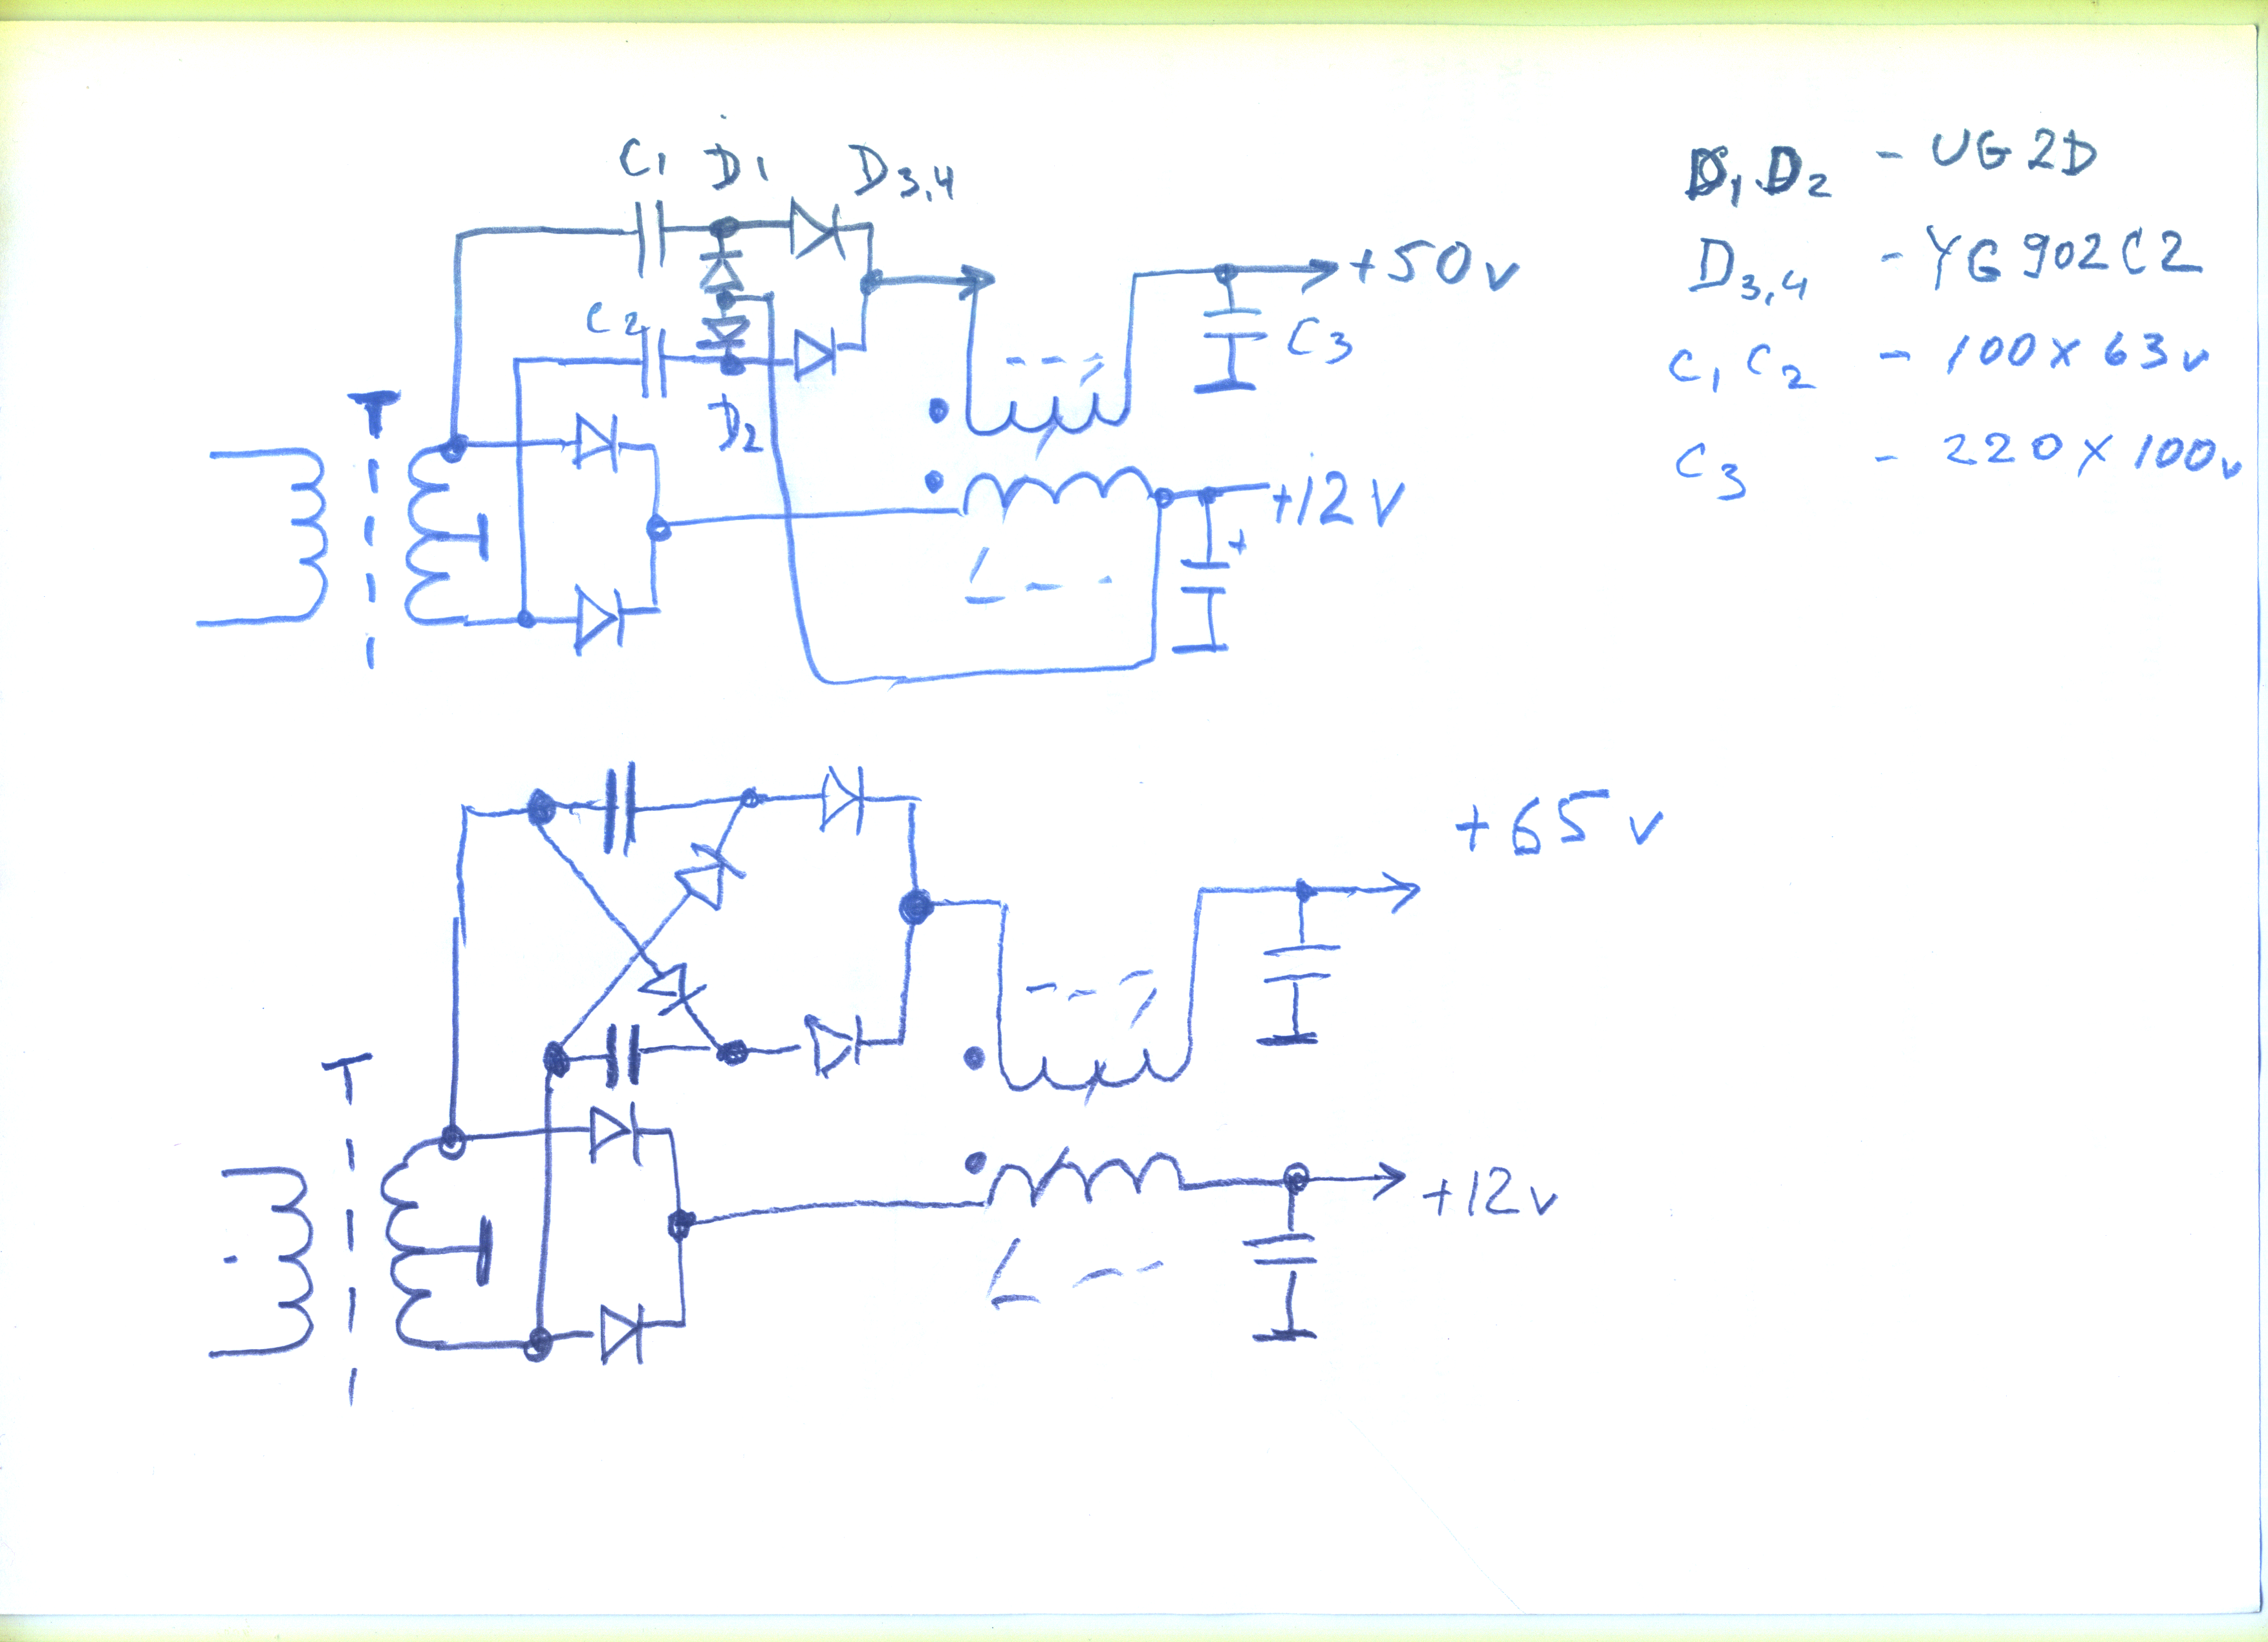 C1 D1 D3,4
C2
D2
T
+50v
C3
+12V
+
L
D1 D2 - UG2D
D3,4 - YG902C2
C1 C2 - 100x63v
C3 - 220x100v
T
+65v
+12v
L